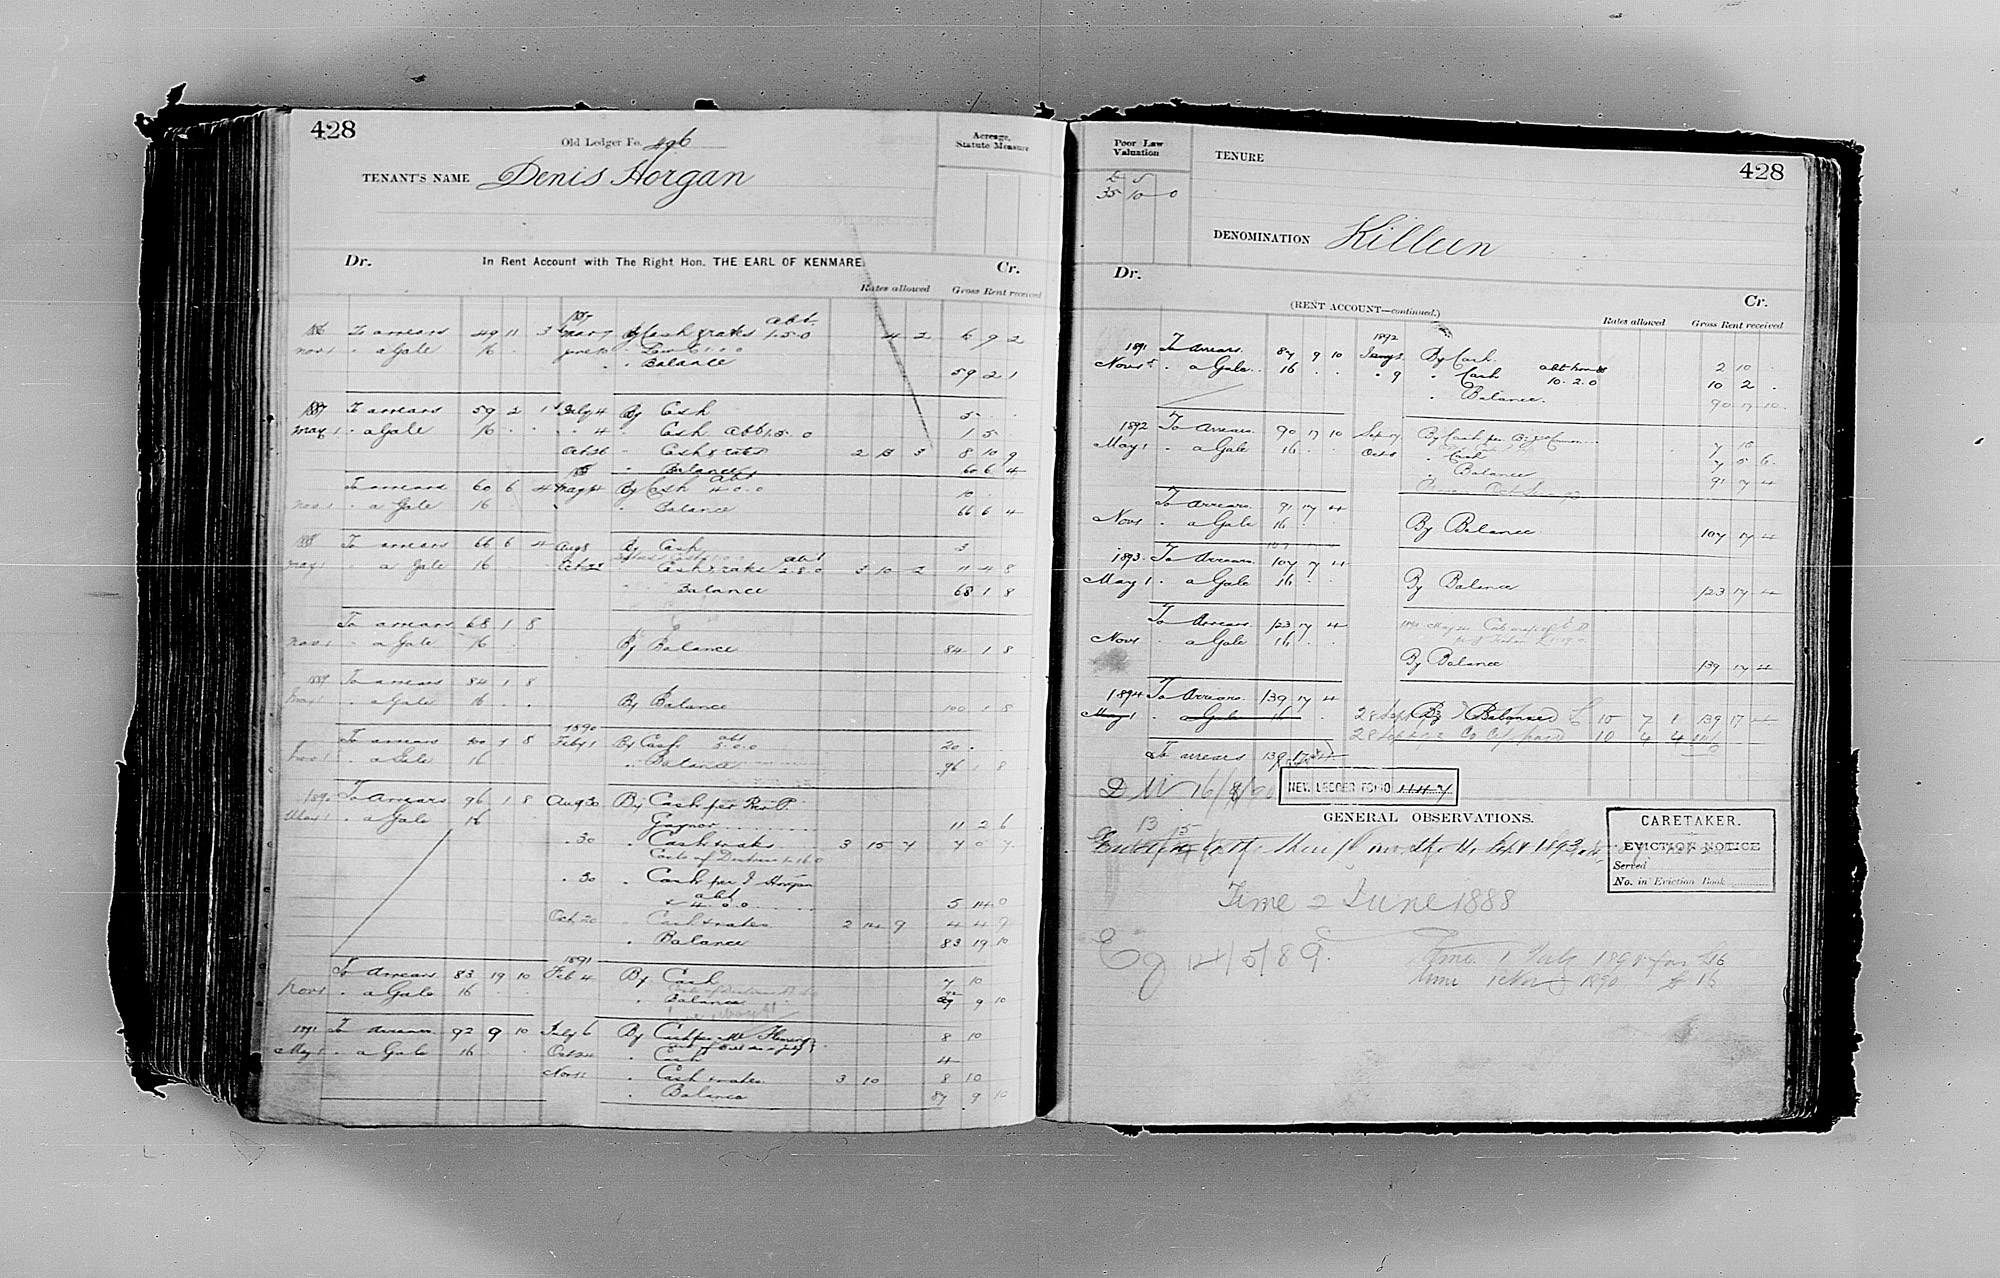 428
Old Ledger Fo. 496
Acreage, Statute Measure
TENANT'S NAME Denis Horgan
Dr. In Rent Account with The Right Hon. THE EARL OF KENMARE. Cr.
Rates allowed Gross Rent received
To arrears 49 11 3 By Cash & rates abt. 1.5.0 4 2 6 9 2
Nov 1 " a Gale 16 June
" Balance 59 2 1
1887 To arrears 59 2 1 July 4 By Cash 5
May 1 " a Gale 16 " 4 " Cash abt 1.5.0 1 5
Oct 26 " Cash & rates 2 13 3 8 10 9
" Balance 60 6 4
To arrears 60 6 4 May 4 By Cash abt 4.0.0 10
Nov 1 " a Gale 16 " Balance 66 6 4
1888 To arrears 66 6 4 Aug 8 By Cash 3
May 1 " a Gale 16 Oct 22 Cash & rates abt 2.8.0 3 10 2 11 4 8
Balance 68 1 8
To arrears 68 1 8
Nov 1 " a Gale 16 By Balance 84 1 8
1889 To arrears 84 1 8
May 1 " a Gale 16 By Balance 100 1 8
1890
To arrears 100 1 8 Feby 1 By Cash abt 5.0.0 20
Nov 1 " a Gale 16 " Balance 96 1 8
1890 To Arrears 96 1 8 Aug 30 By Cash per Rev P.
May 1 " a Gale 16 Gaynor 11 2 6
" 30 " Cash & rates 3 15 7 7 0 7
Costs of
" 30 " Cash per J Horgan
abt
4.0.0 5 14 0
Oct 20 " Cash & rates 2 14 9 4 4 9
" Balance 83 19 10
1891
To Arrears 83 19 10 Feb 4 By Cash 7 10
Nov 1 " a Gale 16 " Balance 92 9 10
1891 To Arrears 92 9 10 July 6 By Cash per Mr Fleming 8 10
May 1 " a Gale 16 Oct 24 " Cash 4
Nov 11 " Cash & rates 3 10 8 10
" Balance 87 9 10
Poor Law Valuation
TENURE
428
£ s
35 10 0
DENOMINATION Killeen
Dr.
(RENT ACCOUNT—continued.) Cr.
Rates allowed Gross Rent received
1891 To Arrears 87 9 10 1892 By Cash 2 10
Nov 1st " a Gale 16 " 9 " Cash 10.2.0 10 2
" Balance 90 17 10
1892 To Arrears 90 17 10 Sep 17 By Cash per 7 15
May 1 " a Gale 16 Oct 8 " Cash 7 5 6
" Balance 91 17 4
To Arrears 91 17 4
Nov 1 " a Gale 16 By Balance 107 17 4
1893 To Arrears 107 17 4
May 1 " a Gale 16 By Balance 123 17 4
To Arrears 123 17 4
Nov 1 " a Gale 16
By Balance 139 17 4
1894 To Arrears 139 17 4
May 1 " a Gale 16 28 Sept By Balance 15 7 1 139 17 4
28 Sept 10 4 4
To arrears 139 17 4
NEW LEDGER FOLIO 1147
GENERAL OBSERVATIONS.
CARETAKER.
EVICTION NOTICE
Served
No. in Eviction Book
Sept 1893
Time 2 June 1888
Eg 14/5/89
Time 1 July 1890 for £16
time 1 Nov 1890 £16